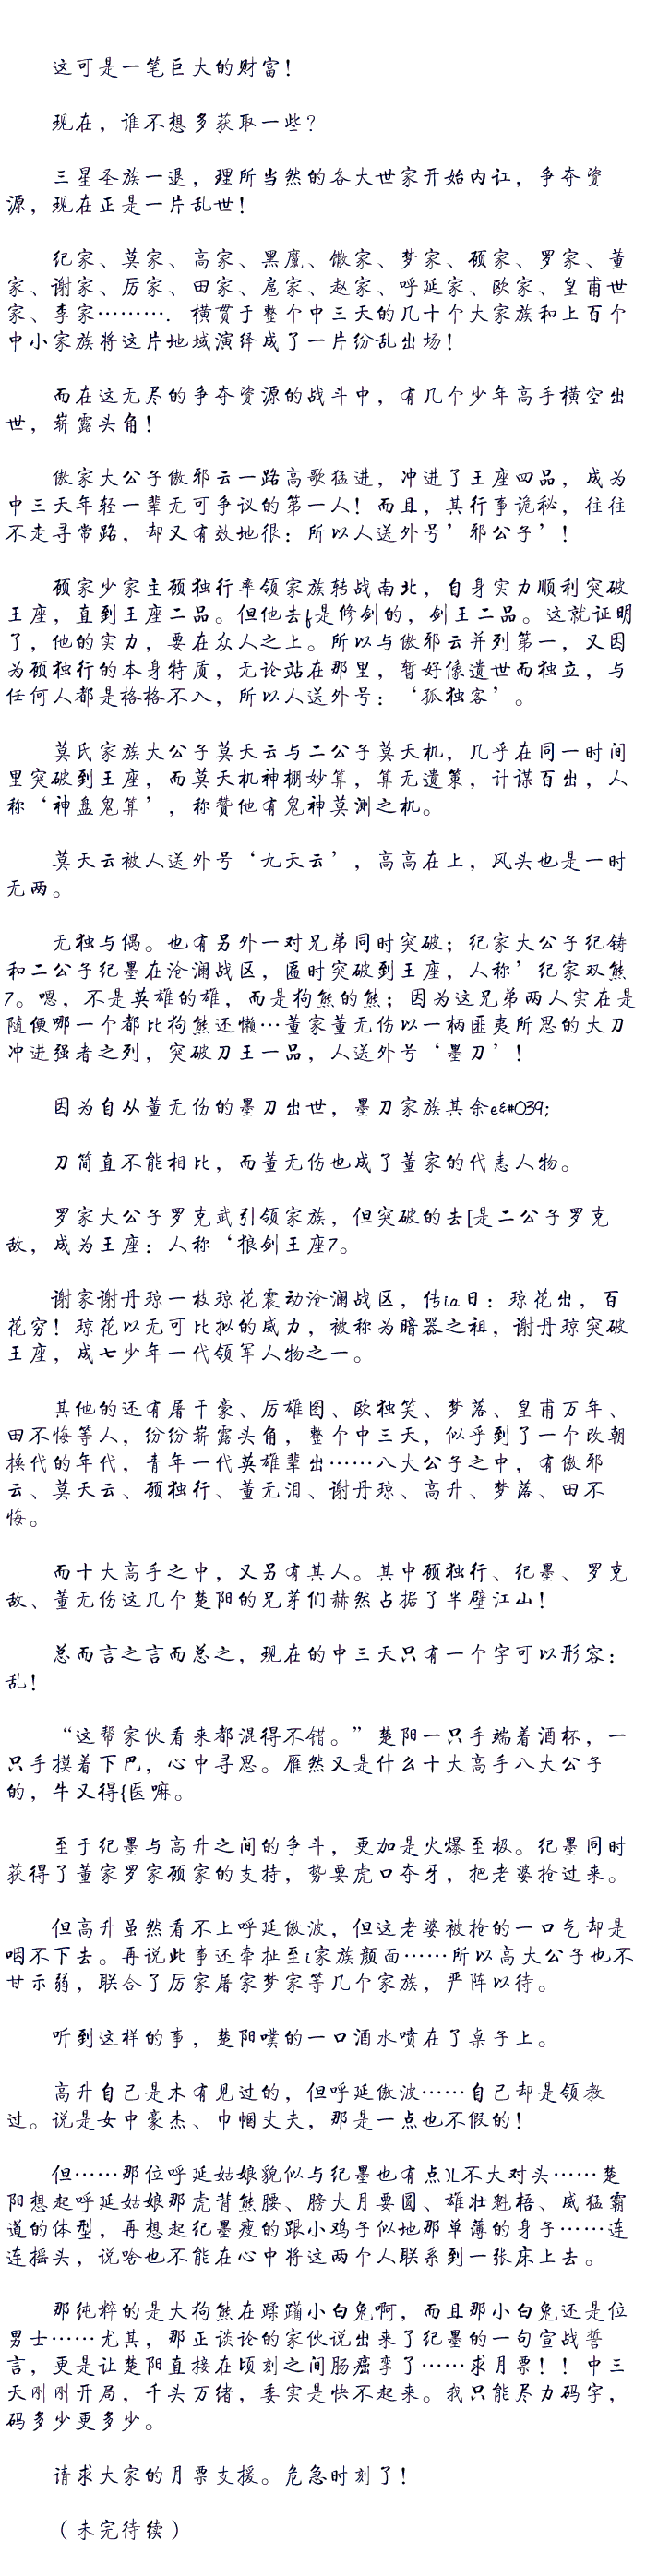 这可是一笔巨大的财富！
现在，谁不想多获取一些？
三星圣族一退，理所当然的各大世家开始内讧，争夺资
源，现在正是一片乱世！
纪家、莫家、高家、黑魔、傲家、梦家、顾家、罗家、董
家、谢家、厉家、田家、扈家、赵家、呼延家、欧家、皇甫世
家、李家………． 横贯于整个中三天的几十个大家族和上百个
中小家族将这片地域演绎成了一片纷乱出场！
而在这无尽的争夺资源的战斗中，有几个少年高手横空出
世，崭露头角！
傲家大公子傲邪云一路高歌猛进，冲进了王座四品，成为
中三天年轻一辈无可争议的第一人！而且，其行事诡秘，往往
不走寻常路，却又有效地很：所以人送外号’邪公子’！
顾家少家主顾独行率领家族转战南北，自身实力顺利突破
王座，直到王座二品。但他去f是修剑的，剑王二品。这就证明
了，他的实力，要在众人之上。所以与傲邪云并列第一，又因
为顾独行的本身特质，无论站在那里，暂好像遗世而独立，与
任何人都是格格不入，所以人送外号：‘孤独客’。
莫氏家族大公子莫天云与二公子莫天机，几乎在同一时间
里突破到王座，而莫天机神棚妙算，算无遗策，计谋百出，人
称‘神盘鬼算’，称赞他有鬼神莫测之机。
莫天云被人送外号‘九天云’，高高在上，风头也是一时
无两。
无独与偶。也有另外一对兄弟同时突破；纪家大公子纪铸
和二公子纪墨在沧澜战区，匾时突破到王座，人称’纪家双熊
7。嗯，不是英雄的雄，而是狗熊的熊；因为这兄弟两人实在是
随便哪一个都比狗熊还懒…董家董无伤以一柄匪夷所思的大刀
冲进强者之列，突破刀王一品，人送外号‘墨刀’！
因为自从董无伤的墨刀出世，墨刀家族其余e&#039;
刀简直不能相比，而董无伤也成了董家的代恚人物。
罗家大公子罗克武引领家族，但突破的去[是二公子罗克
敌，成为王座：人称‘狼剑王座7。
谢家谢丹琼一枝琼花震动沧澜战区，传ia日：琼花出，百
花穷！琼花以无可比拟的威力，被称为暗器之祖，谢丹琼突破
王座，成七少年一代领军人物之一。
其他的还有屠千豪、厉雄图、欧独笑、梦落、皇甫万年、
田不悔等人，纷纷崭露头角，整个中三天，似乎到了一个改朝
换代的年代，青年一代英雄辈出……八大公子之中，有傲邪
云、莫天云、顾独行、董无泪、谢丹琼、高升、梦落、田不
悔。
而十大高手之中，又另有其人。其中顾独行、纪墨、罗克
敌、董无伤这几个楚阳的兄芽们赫然占据了半壁江山！
总而言之言而总之，现在的中三天只有一个字可以形容：
乱！
“这帮家伙看来都混得不错。”楚阳一只手端着酒杯，一
只手摸着下巴，心中寻思。雁然又是什么十大高手八大公子
的，牛又得{医嘛。
至于纪墨与高升之间的争斗，更加是火爆至极。纪墨同时
获得了董家罗家顾家的支持，势要虎口夺牙，把老婆抢过来。
但高升虽然看不上呼延傲波，但这老婆被抢的一口气却是
咽不下去。再说此事还牵扯至i家族颜面……所以高大公子也不
甘示弱，联合了厉家屠家梦家等几个家族，严阵以待。
听到这样的事，楚阳噗的一口酒水喷在了桌子上。
高升自己是木有见过的，但呼延傲波……自己却是领教
过。说是女中豪杰、巾帼丈夫，那是一点也不假的！
但……那位呼延姑娘貌似与纪墨也有点)L不大对头……楚
阳想起呼延姑娘那虎背熊腰、膀大月要圆、雄壮魁梧、威猛霸
道的体型，再想起纪墨瘦的跟小鸡子似地那单薄的身子……连
连摇头，说啥也不能在心中将这两个人联系到一张床上去。
那纯粹的是大狗熊在蹂躏小白兔啊，而且那小白兔还是位
男士……尤其，那正谈论的家伙说出来了纪墨的一句宣战誓
言，更是让楚阳直接在顷刻之间肠癌挛了……求月票！！中三
天刚刚开局，千头万绪，委实是快不起来。我只能尽力码字，
码多少更多少。
请求大家的月票支援。危急时刻了！
（未完待续）